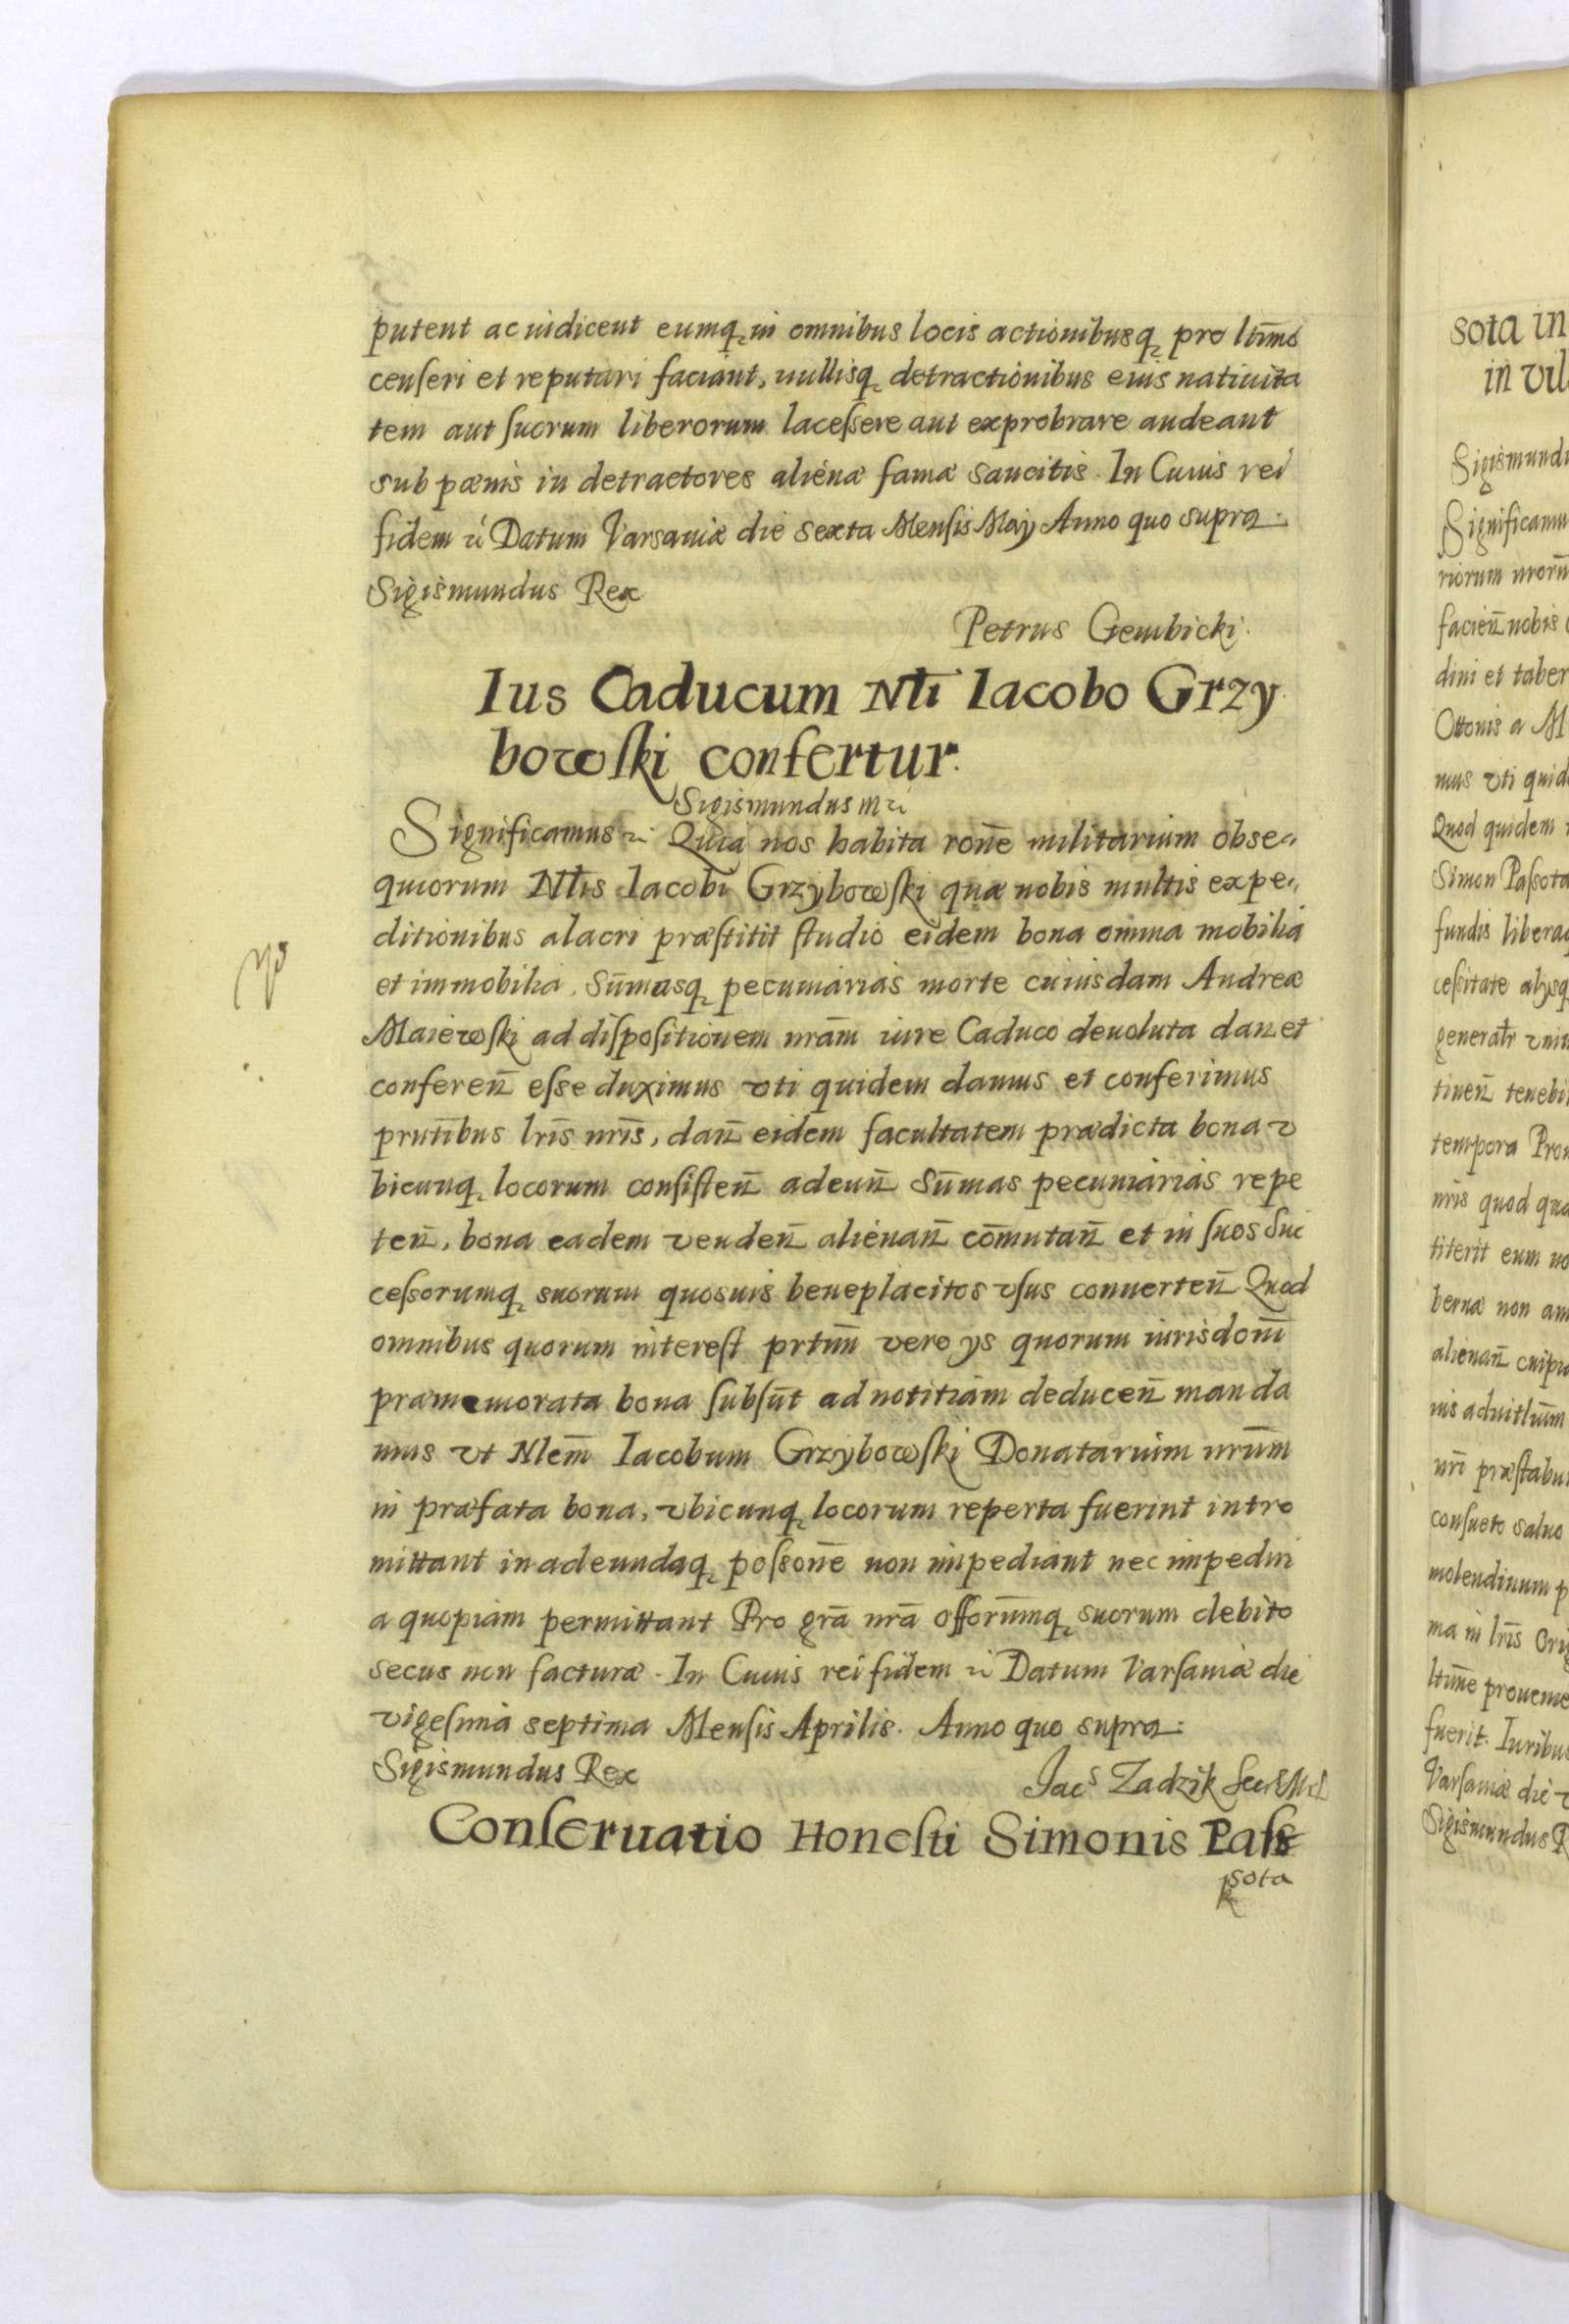 putent ac iudicent eumq in omnibus locis actionibusq pro ltimo
censeri et reputari faciant, nullisq detractionibus eius natiuita
tem aut suorum liberorum lacessere aut exprobrare audeant
sub pœnis in detractores alienæ famæ sancitis. In Cuius rei
fidem &c Datum Varsauiæ die sexta Mensis Maij Anno quo supra.
Sigismundus Rex
Petrus Gembicki.
Ius Caducum Nli Iacobo Grzy
bowski confertur.
Sigismundus III &c
Significamus &c Quia nos habita rone militarium obse
quiorum Nlis Iacobi Grzybowski quæ nobis multis expe
ditionibus alacri præstitit studio eidem bona omnia mobilia
et immobilia, sum̄asq pecuniarias morte cuiusdam Andreæ
Maiewski ad dispositionem nrām iure Caduco deuoluta dan et
conferen̄ esse duximus vti quidem damus et conferimus
prntibus lrīs nrīs, dan̄ eidem facultatem prædicta bona v
bicunq locorum consisten̄ adeun̄ sum̄as pecuniarias repe
ten̄, bona eadem venden̄ alienan̄ com̄utan̄ et in suos suc
cessorumq suorum quosuis beneplacitos vsus conuerten̄ Quod
omnibus quorum interest prtim vero ijs quorum iurisdoni
præmemorata bona subsūt ad notitiam deducen̄ manda
mus vt Nlem̄ Iacobum Grzybowski Donatarium nrūm
in præfata bona, vbicunq locorum reperta fuerint intro
mittant in adeundaq possone non impediant nec impediri
a quopiam permittant Pro grā nrā offorumq suorum debito
secus non facturæ. In Cuius rei fidem &c Datum Varsauiæ die
vigesima septima Mensis Aprilis. Anno quo supra.
Sigismundus Rex
Jacs Zadzik
Conseruatio Honesti Simonis Pas
sota
sota in
in vil
Sigismundu
Significamu
riorum nrorū
facien̄ nobis
dini et taber
Ottonis a M
mus vti quid
Quod quidem
Simon Passota
fundis libera
cessitate alijsq
generalr
tinen̄ tenebi
tempora Pro
nris quod qua
titerit eum no
bernæ non am
alienan̄ cuipu
ius aduitlium
nri præstabu
consueto saluo
molendinum p
ma in lrīs Ori
ltime proueme
fuerit. Iuribus
Varsauiæ die v
Sigismundus R